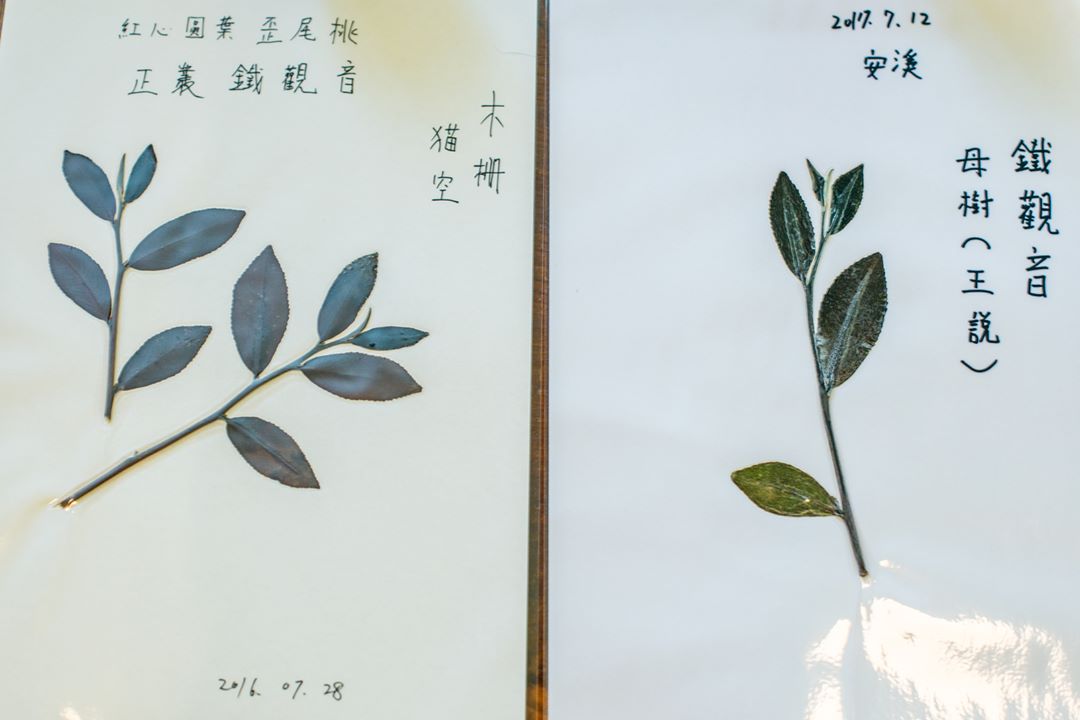 紅心圓葉 歪尾桃
正叢 鐵觀音
木柵
猫空
2016. 07. 28
2017. 7. 12
安溪
鐵觀音
母樹(王説)